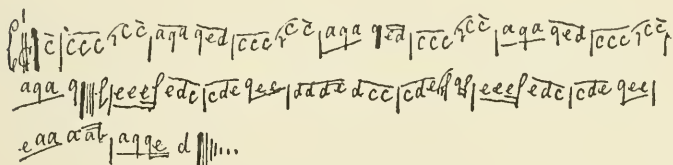 c | c c c r c c | a q a q e d | c c c r c c | a q a q e d | c c c r c c | a q a q e d | c c c r c c
a q a q | f | e e e f e d c | c d e q e c | d d d d d c c | c d e f g f | e e e f e d c | c d e q e e |
e a a a a b | a q q e d